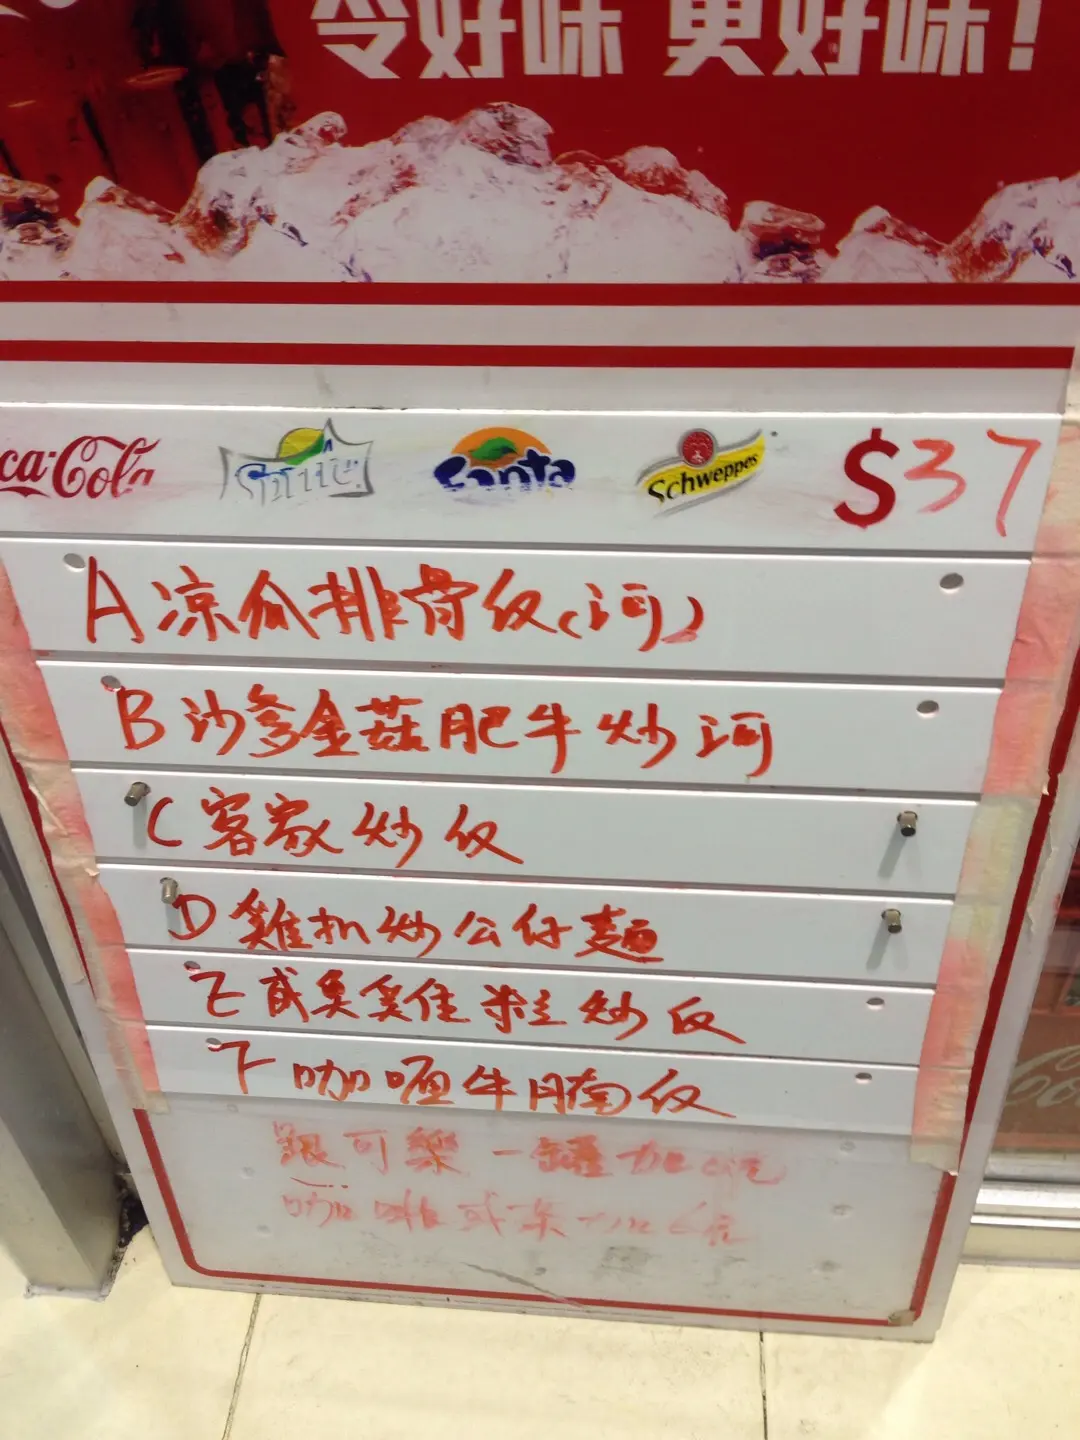 令好味 更好味！
ca-Cola Sprite Fanta Schweppes $37
A 凉瓜排骨反(河)
B 沙爹金菇肥牛炒河
C 客家炒反
D 雞扒炒公仔麵
E 咸臭雞粒炒反
F 咖喱牛腩反
跟可樂一罐加6元
咖啡或茶加6元